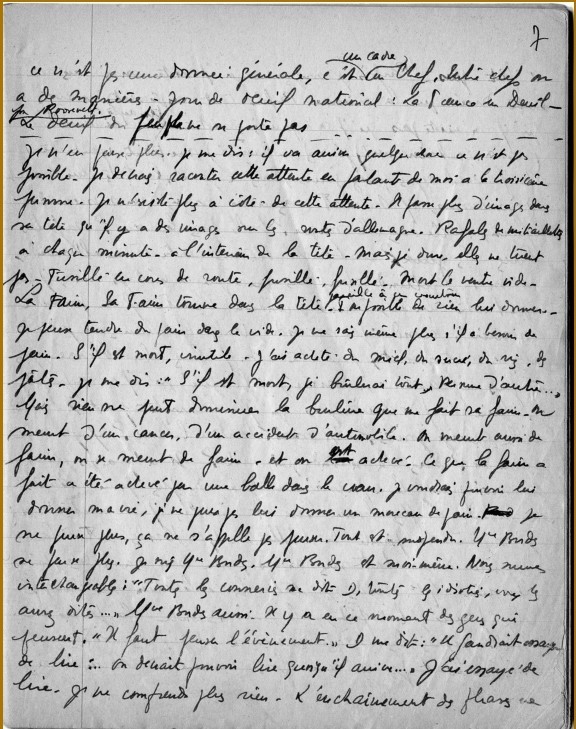 7
un cadre
ce n'est pas une donnée générale, c'est un chef, chef on
a des manières - jour de deuil national : La France en Deuil -
pour Roosevelt
Le deuil du ne se porte pas
Je n'en peux plus. je me dis : il va arriver quelque chose ce n'est pas
possible. je devrais raconter cette attente en parlant de moi à la troisième
personne. Je n'existe plus à côté de cette attente. Il passe plus d'images dans
sa tête qu'il y a des images sur les routes d'Allemagne. Rafales de mitraillettes
à chaque minute à l'intérieur de la tête. Mais je dure, elles ne tuent
pas. Fusillé en cours de route, fusillé, fusillé. Mort le ventre vide.
La Faim. Sa Faim tourne dans la tête pareille à un vautour
Impossible de rien lui donner.
je peux tendre du pain dans le vide. Je ne sais même plus s'il a besoin de
pain. S'il est mort, inutile. J'ai acheté du miel, du sucre, du riz, des
pâtes. je me dis : "S'il est mort, je brûlerai tout".
Mais rien ne peut diminuer la brûlure que me fait sa faim. On
meurt d'un cancer, d'un accident d'automobile. On meurt aussi de
faim, on se meurt de faim. et on est achevé. Ce que la faim a
fait a été achevé par une balle dans le cœur. je voudrais pouvoir lui
donner ma vie, je ne peux pas lui donner un morceau de pain. je
ne pense plus, ça ne s'appelle pas penser. Tout est suspendu. Mme Bordes
ne pense plus. Je suis Mme Bordes. Mme Bordes est moi-même. Nous sommes
interchangeables : "Toutes les conneries me dit D., toutes les idioties, vous les
aurez dites..." Mme Bordes aussi. Il y a en ce moment des gens qui
pensent, "Il faut penser l'événement". D me dit : "Il faudrait essayer
de lire... on devrait pouvoir lire quoiqu'il arrive..." J'ai essayé de
lire. Je ne comprends plus rien. L'enchaînement des phrases ne